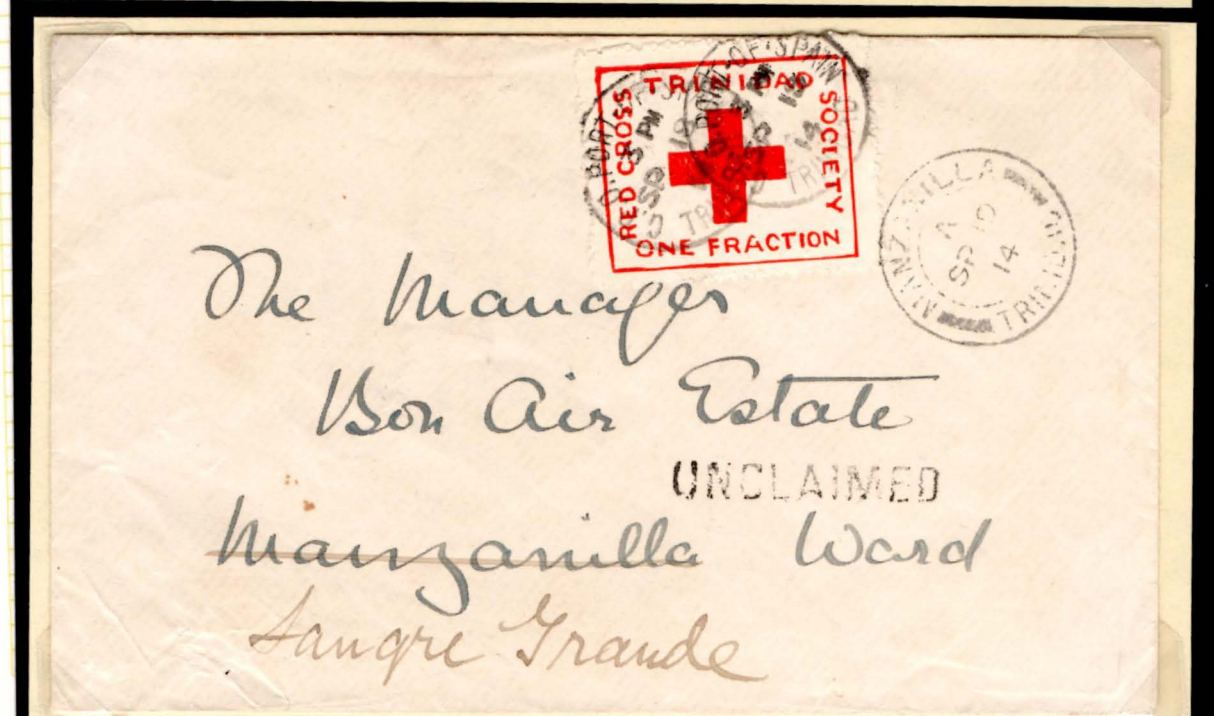 TRINIDAD
RED CROSS
SOCIETY
ONE FRACTION
G.P.O. PORT-OF-SPAIN
3 PM
SP 18
14
TRINIDAD
MANZANILLA
A
SP 19
14
TRINIDAD
The Manager
Bon Air Estate
UNCLAIMED
Manzanilla Ward
Sangre Grande